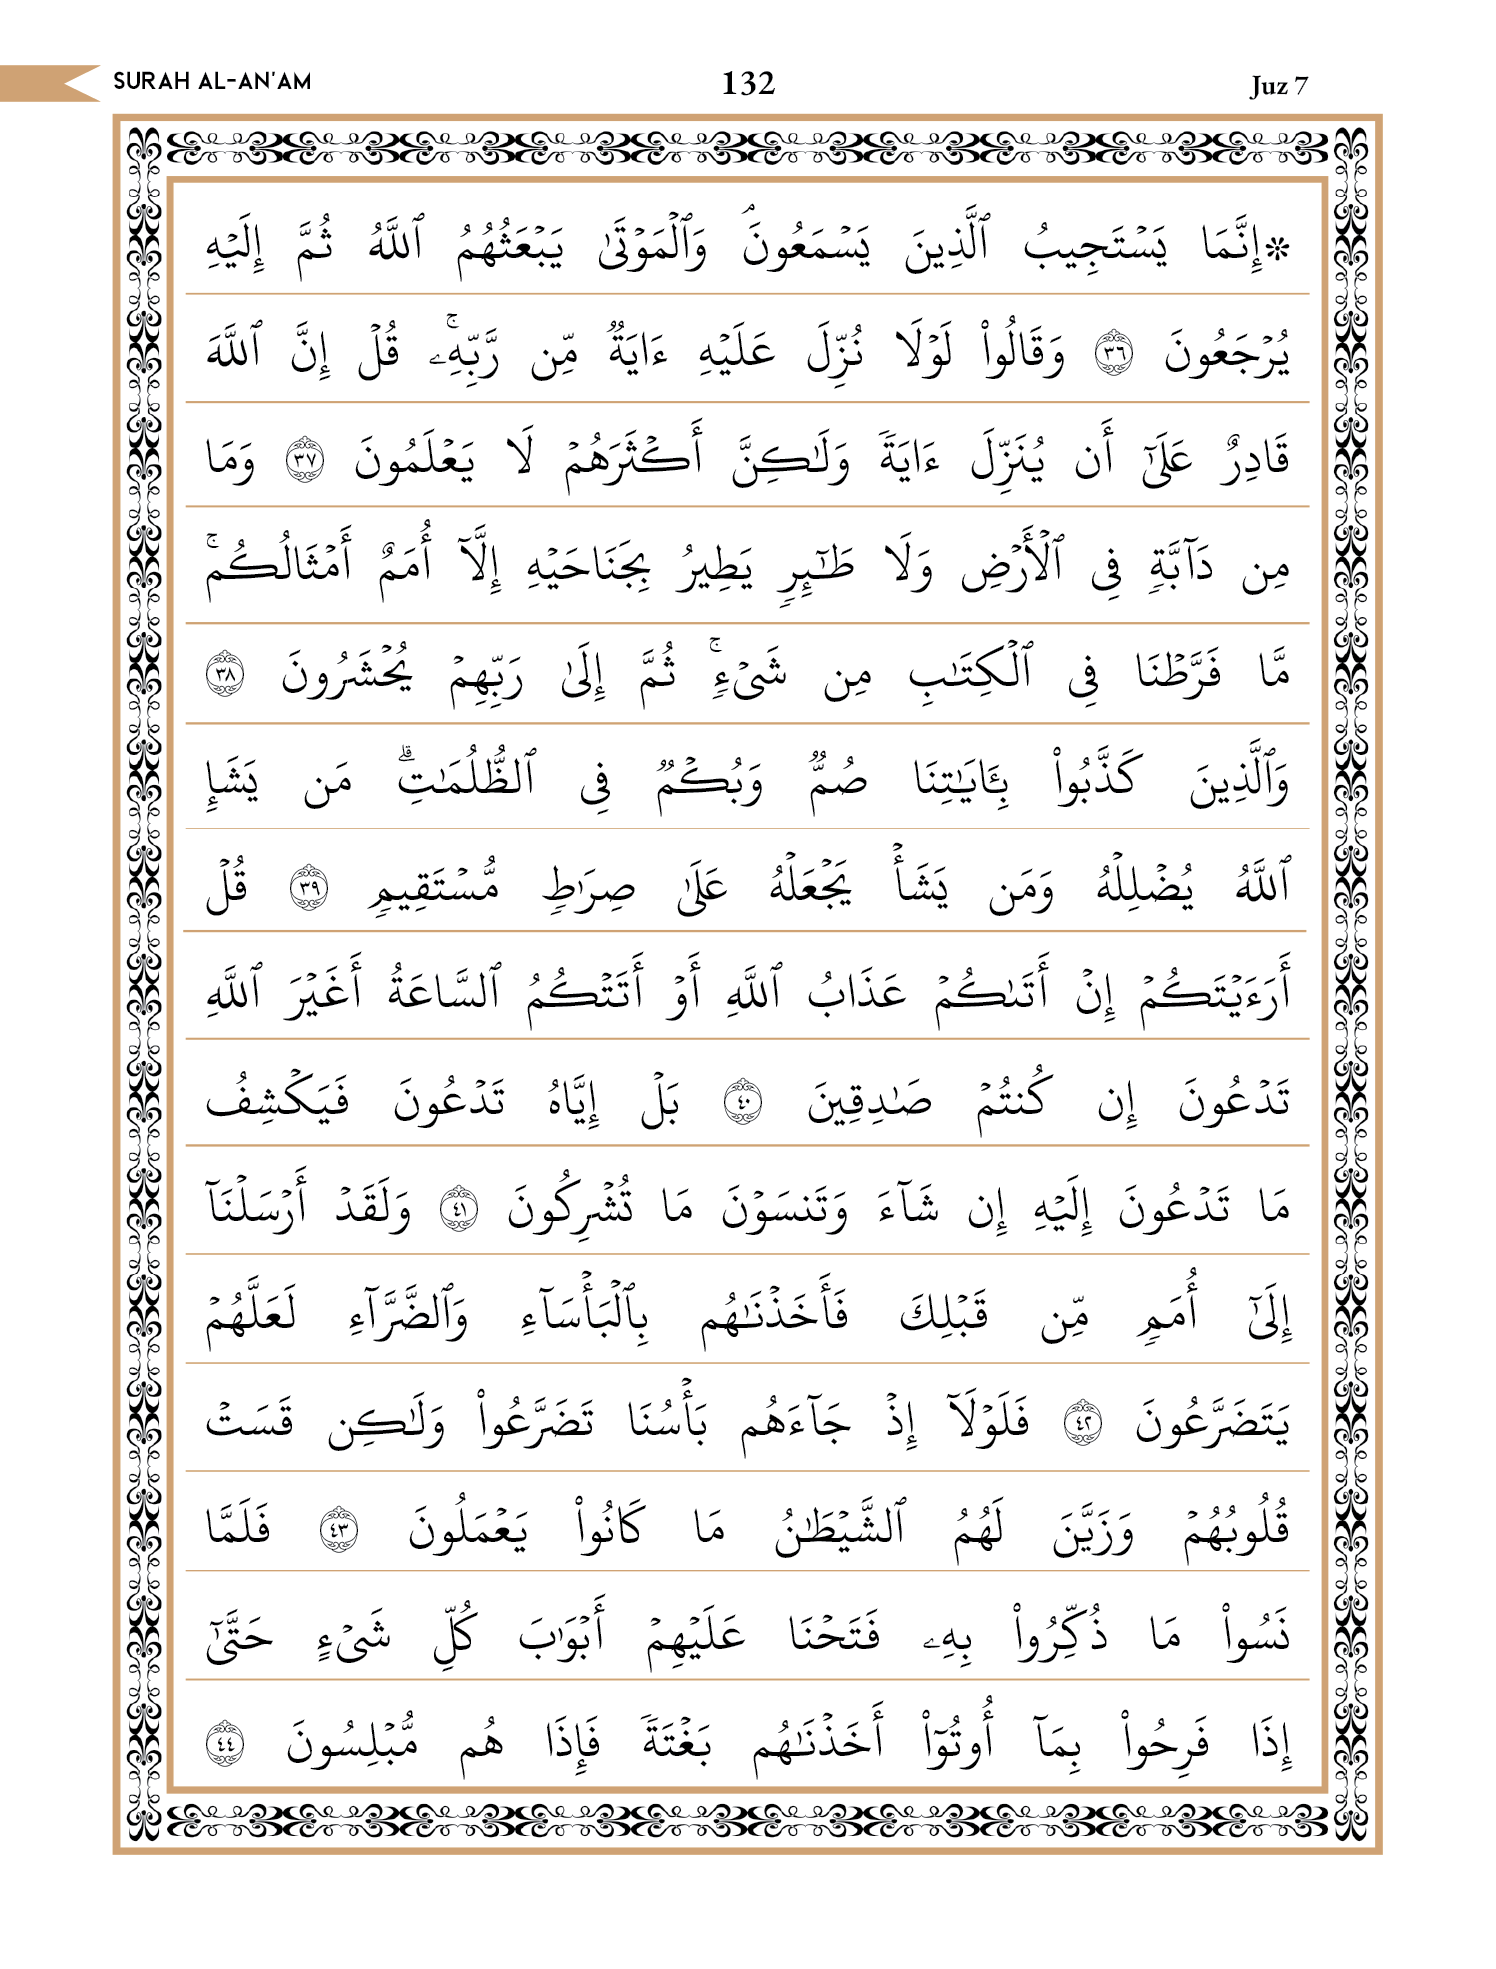 SURAH AL-AN'AM 132 Juz 7
۞إِنَّمَا يَسۡتَجِيبُ ٱلَّذِينَ يَسۡمَعُونَۘ وَٱلۡمَوۡتَىٰ يَبۡعَثُهُمُ ٱللَّهُ ثُمَّ إِلَيۡهِ
يُرۡجَعُونَ ٣٦ وَقَالُواْ لَوۡلَا نُزِّلَ عَلَيۡهِ ءَايَةٞ مِّن رَّبِّهِۦۚ قُلۡ إِنَّ ٱللَّهَ
قَادِرٌ عَلَىٰٓ أَن يُنَزِّلَ ءَايَةٗ وَلَٰكِنَّ أَكۡثَرَهُمۡ لَا يَعۡلَمُونَ ٣٧ وَمَا
مِن دَآبَّةٖ فِي ٱلۡأَرۡضِ وَلَا طَٰٓئِرٖ يَطِيرُ بِجَنَاحَيۡهِ إِلَّآ أُمَمٌ أَمۡثَالُكُمۚ
مَّا فَرَّطۡنَا فِي ٱلۡكِتَٰبِ مِن شَيۡءٖۚ ثُمَّ إِلَىٰ رَبِّهِمۡ يُحۡشَرُونَ ٣٨
وَٱلَّذِينَ كَذَّبُواْ بِـَٔايَٰتِنَا صُمّٞ وَبُكۡمٞ فِي ٱلظُّلُمَٰتِۗ مَن يَشَإِ
ٱللَّهُ يُضۡلِلۡهُ وَمَن يَشَأۡ يَجۡعَلۡهُ عَلَىٰ صِرَٰطٖ مُّسۡتَقِيمٖ ٣٩ قُلۡ
أَرَءَيۡتَكُمۡ إِنۡ أَتَىٰكُمۡ عَذَابُ ٱللَّهِ أَوۡ أَتَتۡكُمُ ٱلسَّاعَةُ أَغَيۡرَ ٱللَّهِ
تَدۡعُونَ إِن كُنتُمۡ صَٰدِقِينَ ٤٠ بَلۡ إِيَّاهُ تَدۡعُونَ فَيَكۡشِفُ
مَا تَدۡعُونَ إِلَيۡهِ إِن شَآءَ وَتَنسَوۡنَ مَا تُشۡرِكُونَ ٤١ وَلَقَدۡ أَرۡسَلۡنَآ
إِلَىٰٓ أُمَمٖ مِّن قَبۡلِكَ فَأَخَذۡنَٰهُم بِٱلۡبَأۡسَآءِ وَٱلضَّرَّآءِ لَعَلَّهُمۡ
يَتَضَرَّعُونَ ٤٢ فَلَوۡلَآ إِذۡ جَآءَهُم بَأۡسُنَا تَضَرَّعُواْ وَلَٰكِن قَسَتۡ
قُلُوبُهُمۡ وَزَيَّنَ لَهُمُ ٱلشَّيۡطَٰنُ مَا كَانُواْ يَعۡمَلُونَ ٤٣ فَلَمَّا
نَسُواْ مَا ذُكِّرُواْ بِهِۦ فَتَحۡنَا عَلَيۡهِمۡ أَبۡوَٰبَ كُلِّ شَيۡءٍ حَتَّىٰٓ
إِذَا فَرِحُواْ بِمَآ أُوتُوٓاْ أَخَذۡنَٰهُم بَغۡتَةٗ فَإِذَا هُم مُّبۡلِسُونَ ٤٤